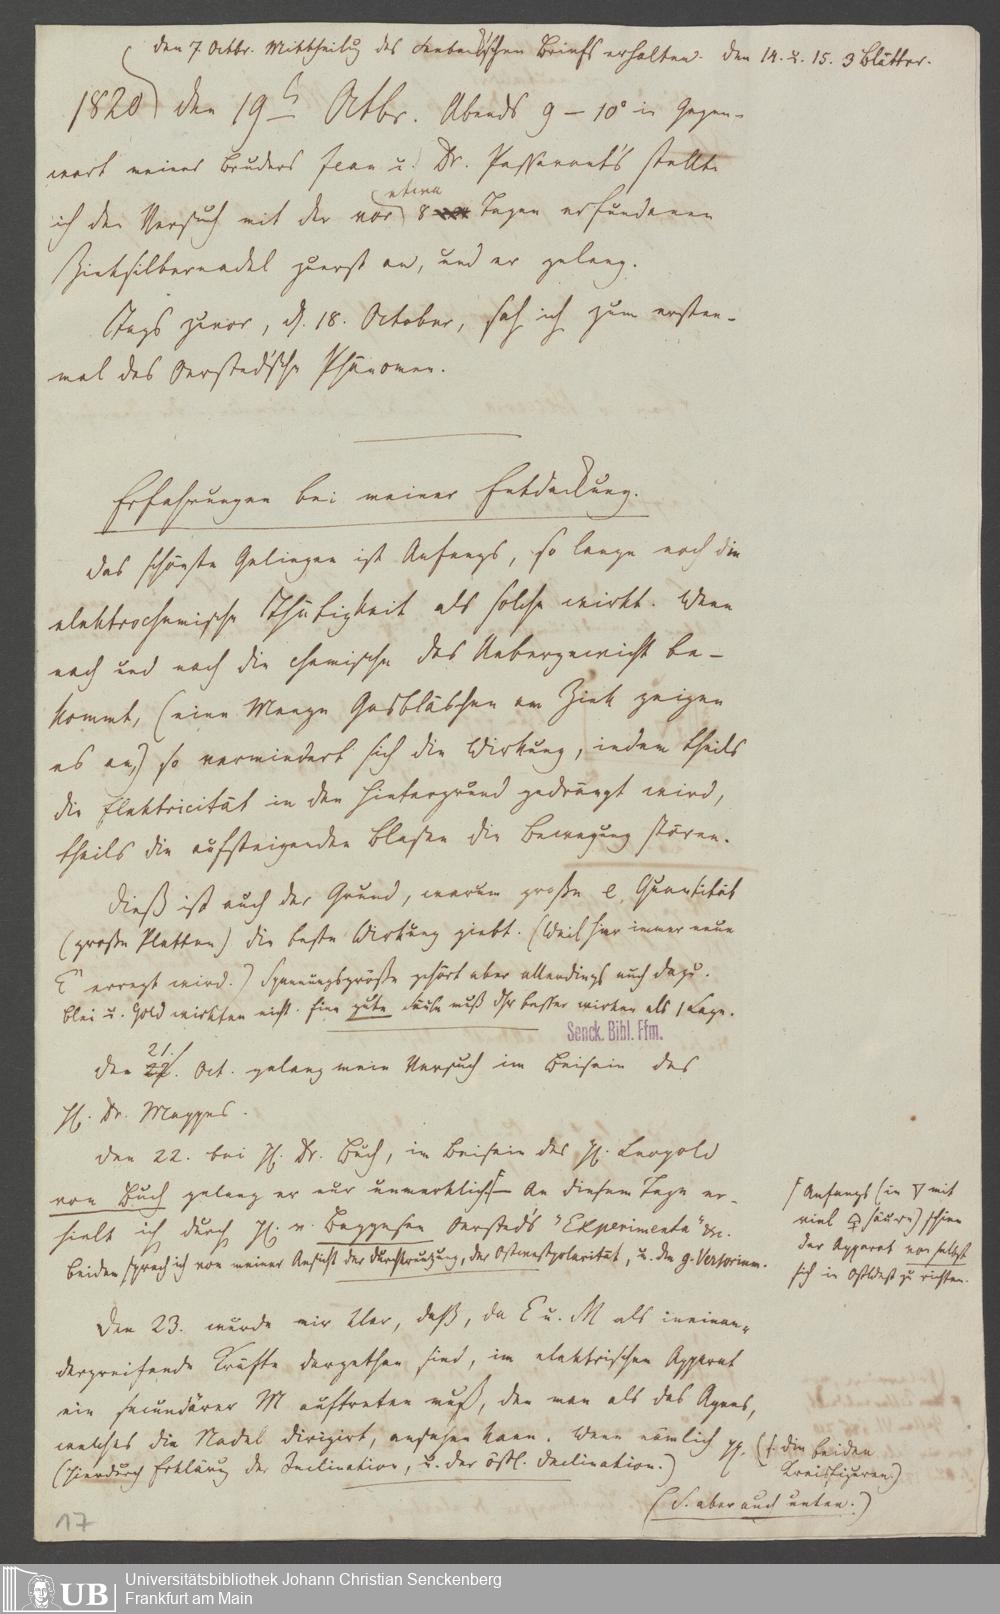 den 7. Octbr. Mittheilung des Seebeck'schen Briefs erhalten. den 14. u. 15. 3 Blätter.
1820 den 19t Octbr. Abends 9 – 10° in Gegen-
wart meines Bruders Jean u. Dr. Passavant's stellte
etwa
ich den Versuch mit der vor 8 Tagen erfundenen
Zinksilbernadel zuerst an, und er gelang.
Tags zuvor, d. 18. October, sah ich zum ersten-
mal das Oersted'sche Phänomen.
Erfahrungen bei meiner Entdeckung.
Das schönste Gelingen ist Anfangs, so lange noch die
elektrochemische Thätigkeit als solche wirkt. Wenn
nach und nach die chemische das Uebergewicht be-
kommt, (eine Menge Gasbläschen am Zink zeigen
es an,) so vermindert sich die Wirkung, indem theils
die Elektricität in den Hintergrund gedrängt wird,
theils die aufsteigenden Blasen die Bewegung stören.
Dieß ist auch der Grund, warum große e. Quantität
(große Platten) die beste Wirkung giebt. (Weil hier immer neue
E erregt wird.) Spannungsgröße gehört aber allerdings auch dazu.
Blei u. Gold wirkten nicht. Eine gute Säule muß dh besser wirken als 1 Lage.
Senck. Bibl. Ffm.
21.
den 22. Oct. gelang mein Versuch im Beisein des
H. Dr. Mappes.
den 22. bei H. Dr. Buch, im Beisein des H. Leopold
von Buch gelang er nur unmerklich. – An diesem Tage er-
hielt ich durch H. v. Baggesen Oersted's "Experimenta" &c.
Beiden sprach ich von meiner Ansicht der Durchkreutzung, der Ostwestpolarität, u. den g. Versorium.
Anfangs (in ∇ mit
viel Säure) schien
der Apparat von selbst
sich in OstWest zu richten.
Den 23. wurde mir klar, daß, da E u. M als ineinan-
dergreifende Kräfte dargethan sind, im elektrischen Apparat
ein secundärer M auftreten muß, den man als das Agens,
welches die Nadel dirigirt, ansehen kann. Wenn nämlich
(s. die beiden
Kreisfiguren.)
(Hierdurch Erklärung der Inclination, u. der östl. Declination.)
(S. aber auch unten.)
17
UB Universitätsbibliothek Johann Christian Senckenberg
Frankfurt am Main